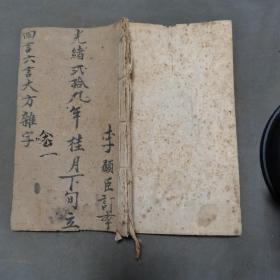 李顯臣訂本
光緒弍拾九年桂月下旬立
四言六言大方雜字
全一